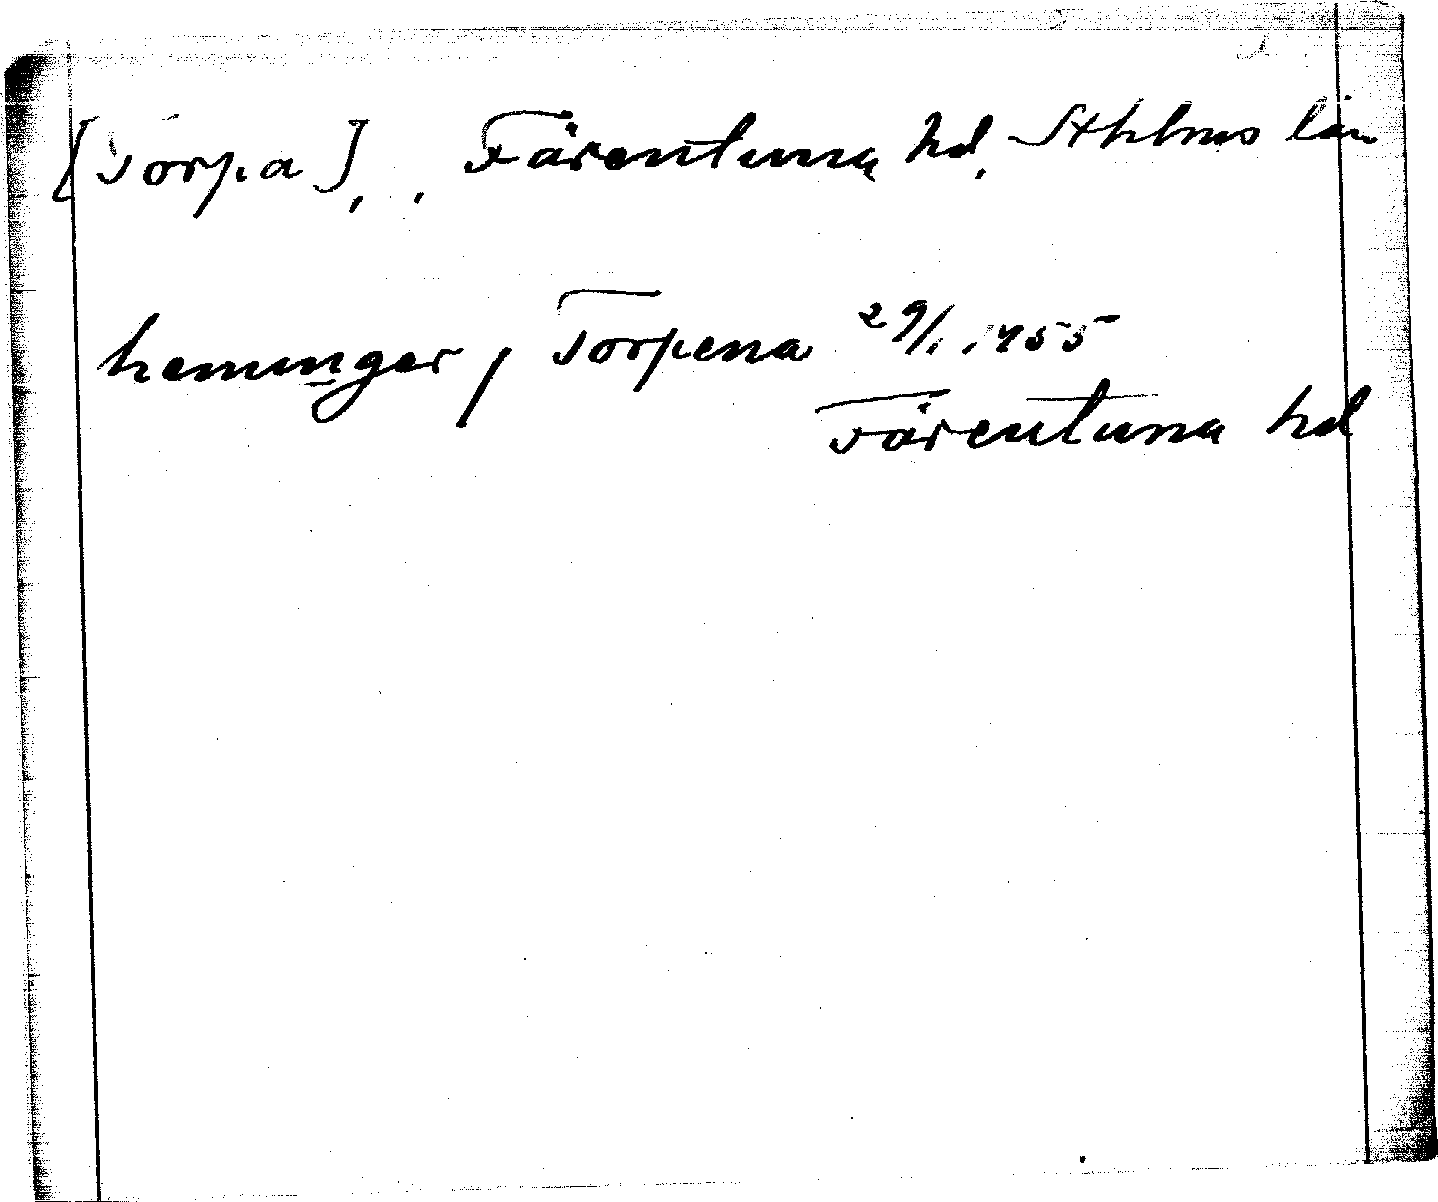 [Torpa], , Färentuna hd, Sthlms län
hemunger / Torpena 29/1 1455
Färentuna hd